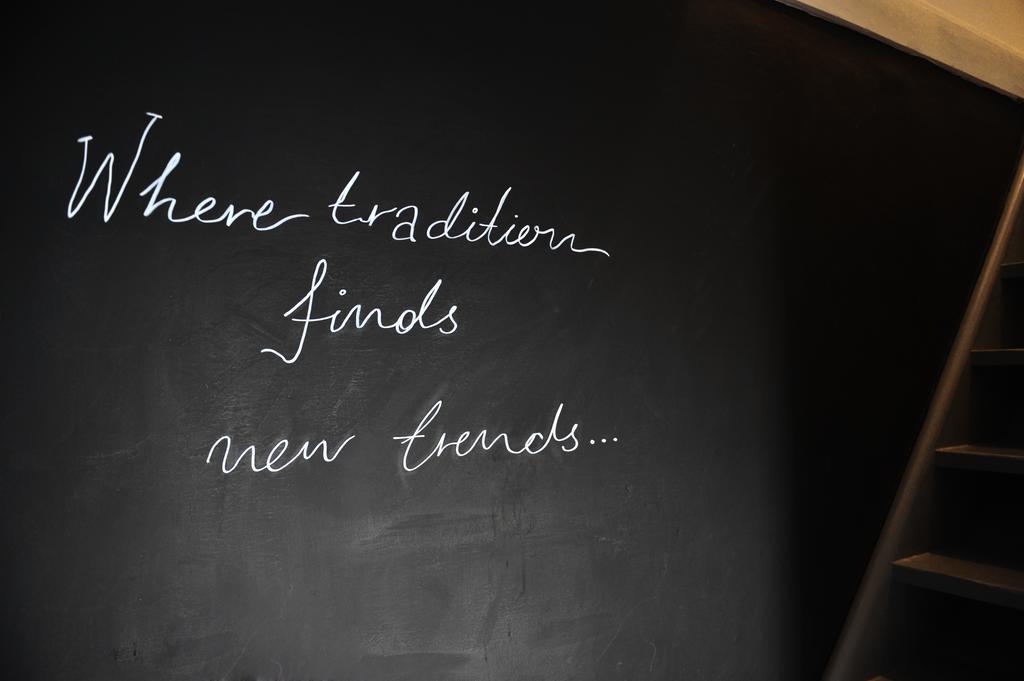 Where tradition
finds
new trends...